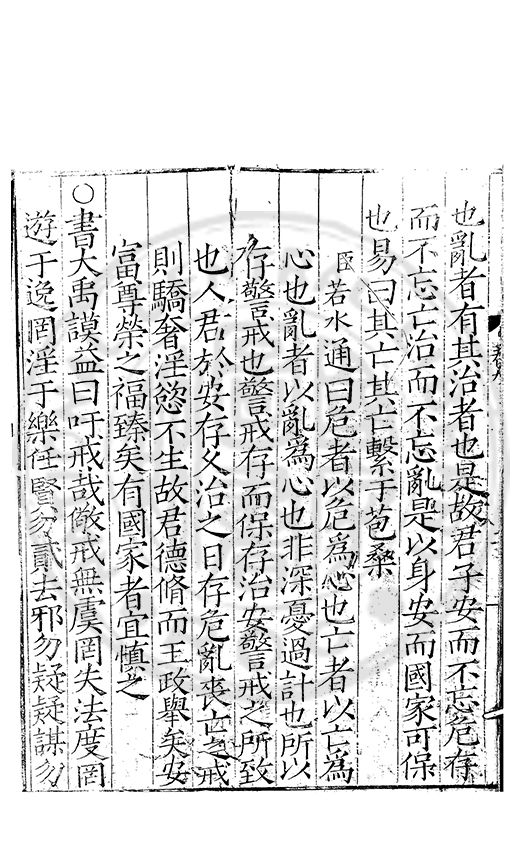 也亂者有其治者也是故君子安而不忘危存
而不忘亡治而不忘亂是以身安而國家可保
也易曰其亡其亡繫于苞桑
臣若水通曰危者以危為心也亡者以亡為
心也亂者以亂為心也非深憂過計也所以
存警戒也警戒存而保存治安警戒之所致
也人君於安存久治之日存危亂喪亡之戒
則驕奢淫慾不生故君德脩而王政舉矣安
富尊榮之福臻矣有國家者宜慎之
○書大禹謨益曰吁戒哉儆戒無虞罔失法度罔
遊于逸罔淫于樂任賢勿貳去邪勿疑疑謀勿